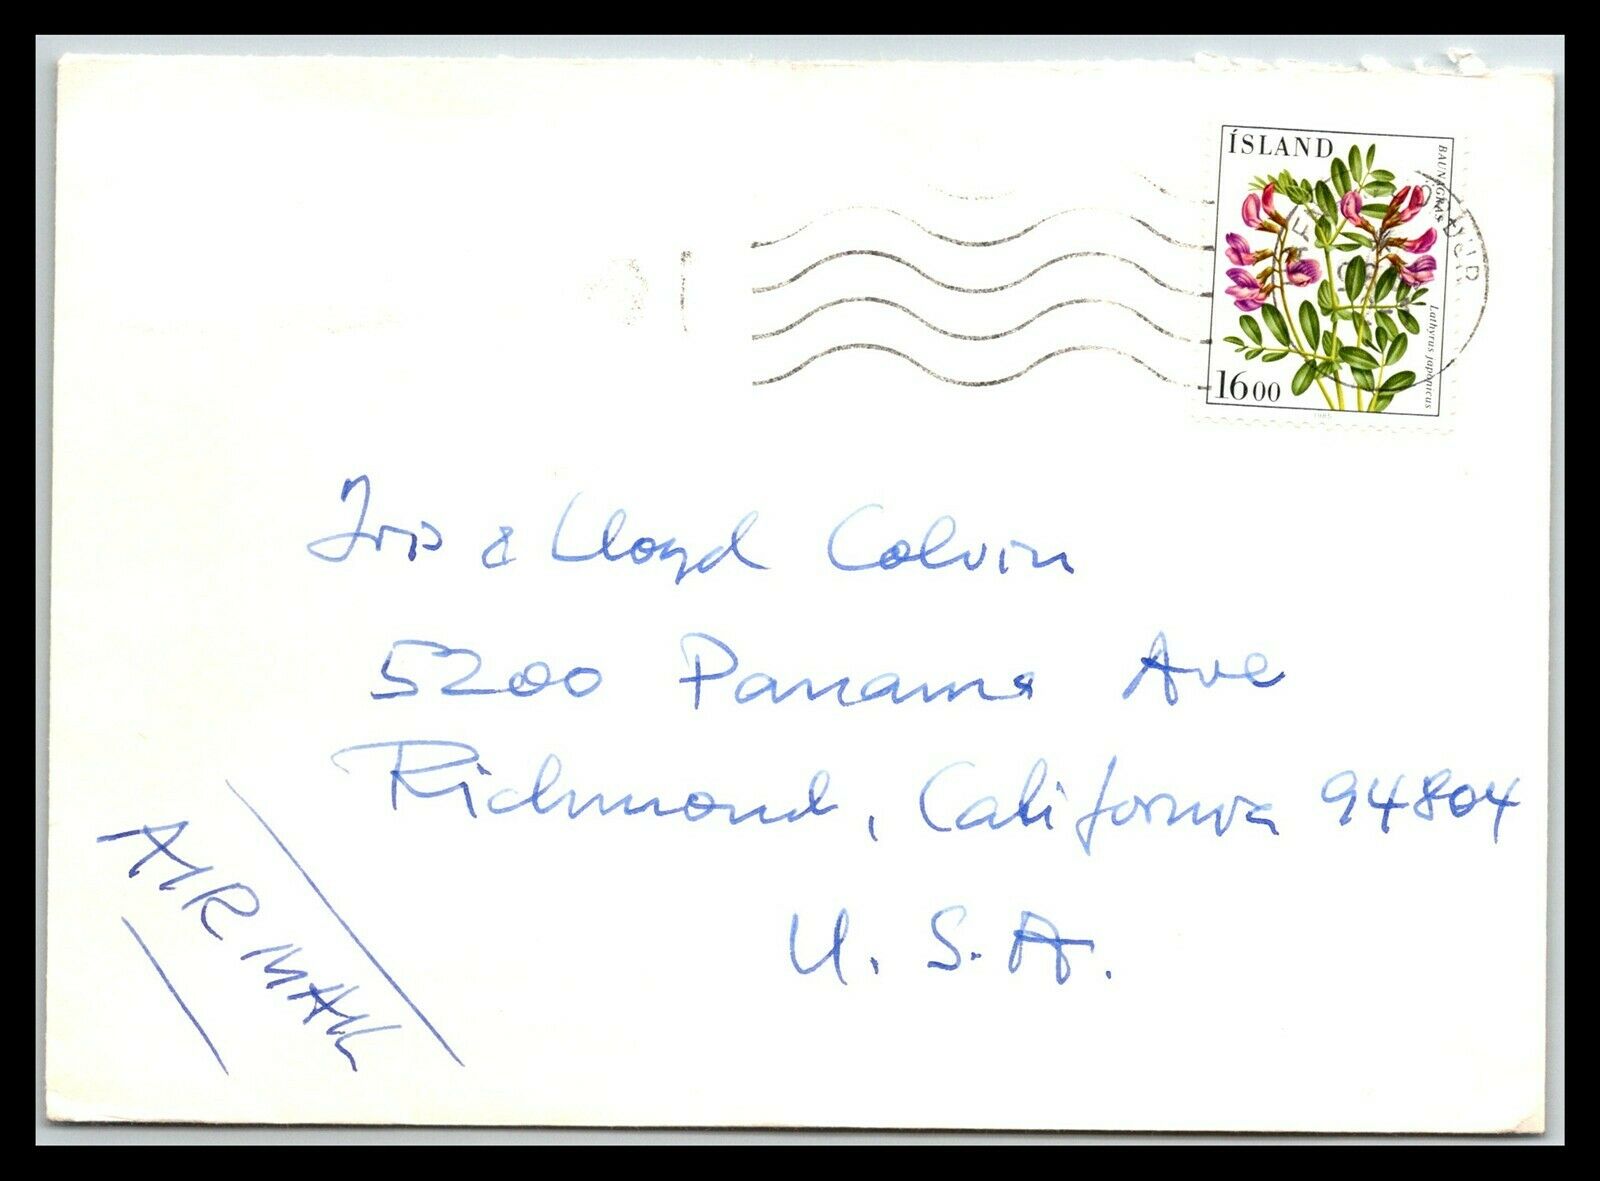 ÍSLAND
BAUNAGRAS
Lathyrus japonicus
16 00
1985
Iris & Lloyd Colvin
5200 Panama Ave
Richmond, California 94804
U. S. A.
AIR MAIL